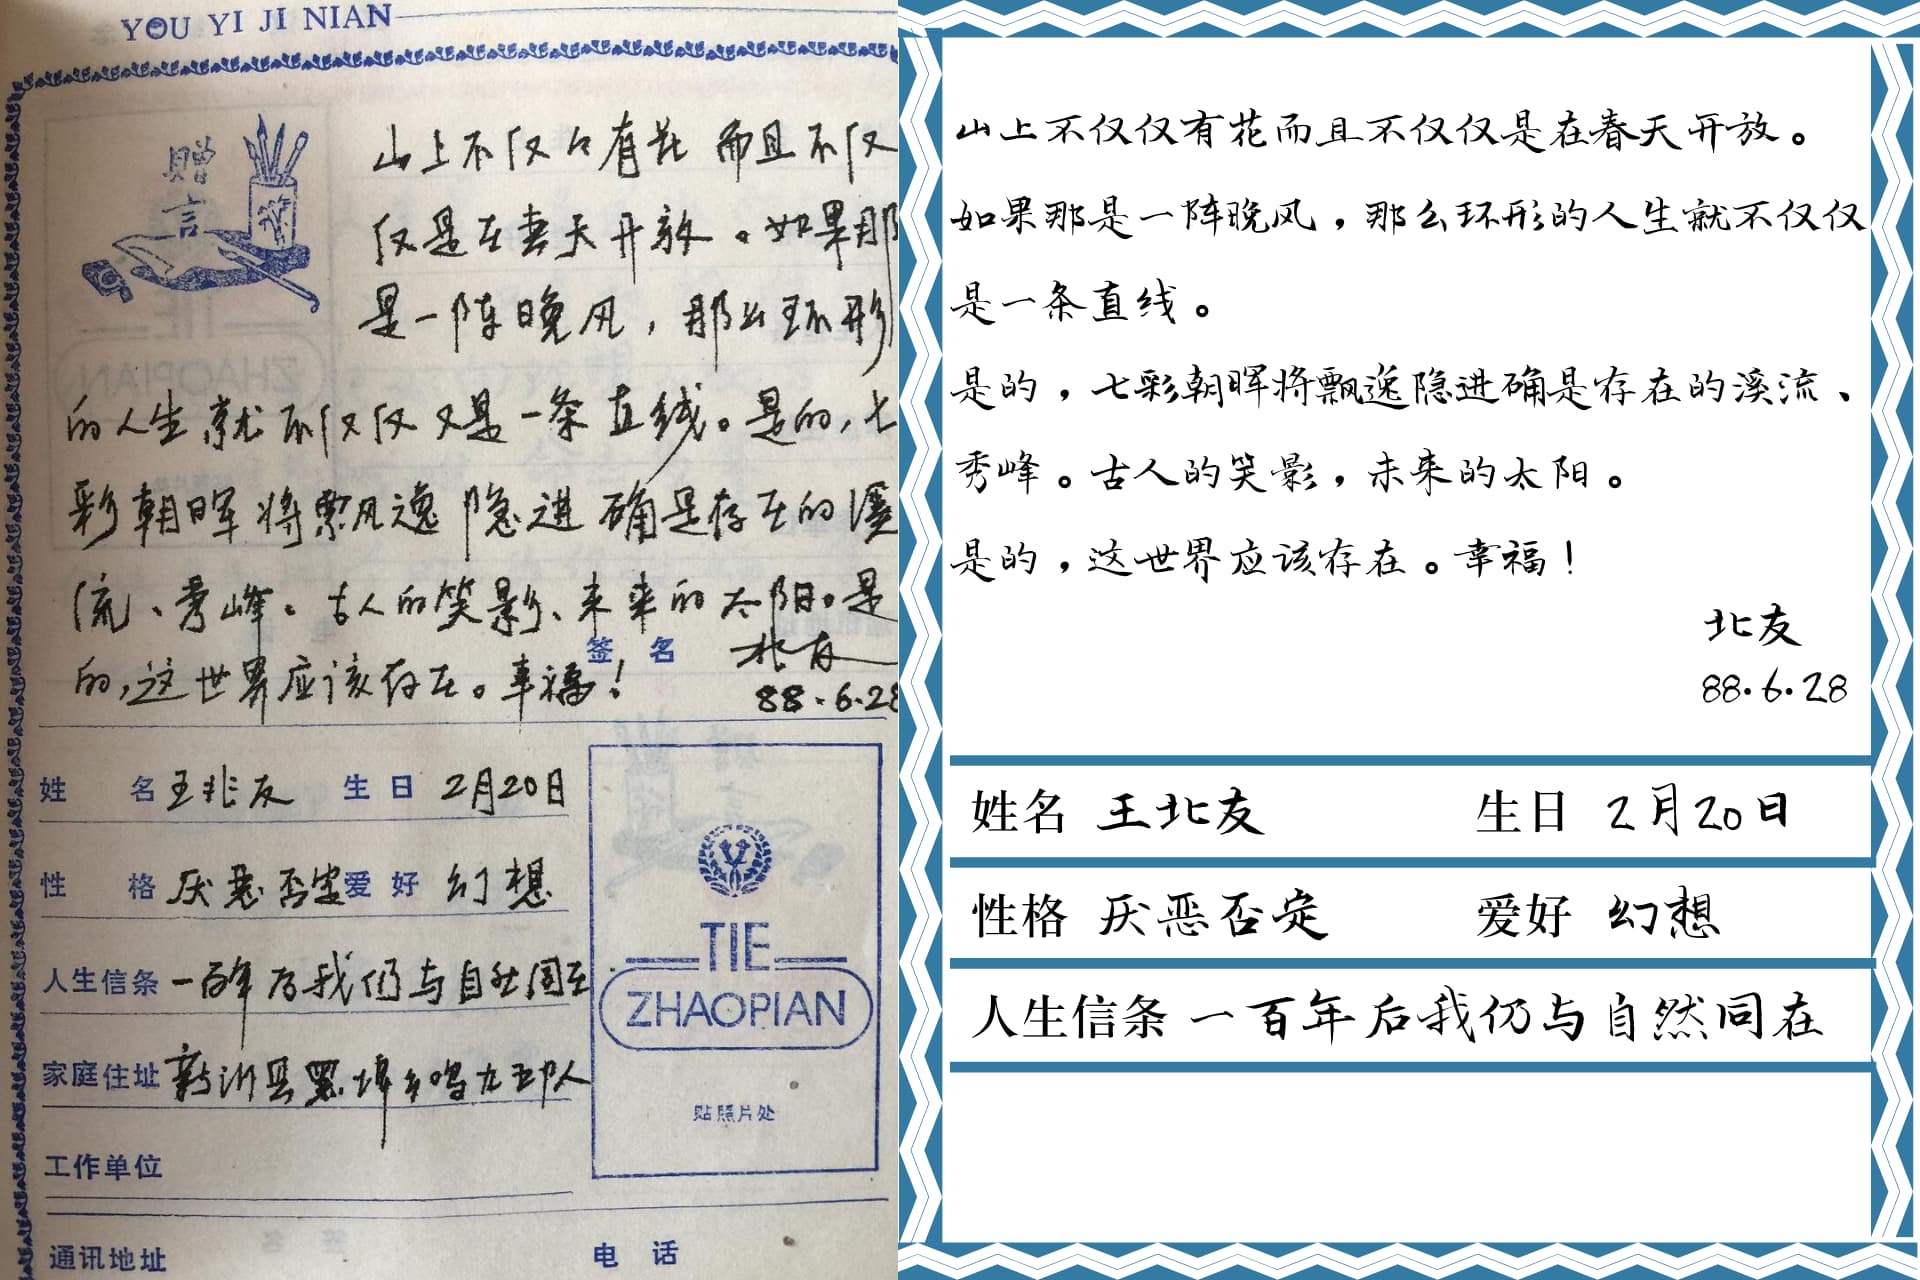 YOU YI JI NIAN
赠言
山上不仅只有花而且不仅
仅是在春天开放。如果那
是一阵晚风，那么环形
的人生就不仅仅又是一条直线。是的，七
彩朝晖将飘逸隐进确是存在的溪
流、秀峰。古人的笑影、未来的太阳。是
的，这世界应该存在。幸福！
签名 北友
88.6.28
姓名 王北友 生日 2月20日
性格 厌恶否定 爱好 幻想
人生信条 一百年后我仍与自然同在
家庭住址 新洲县
工作单位
通讯地址 电话
TIE
ZHAOPIAN
贴照片处
山上不仅仅有花而且不仅仅是在春天开放。
如果那是一阵晚风，那么环形的人生就不仅仅
是一条直线。
是的，七彩朝晖将飘逸隐进确是存在的溪流、
秀峰。古人的笑影，未来的太阳。
是的，这世界应该存在。幸福！
北友
88.6.28
姓名 王北友 生日 2月20日
性格 厌恶否定 爱好 幻想
人生信条 一百年后我仍与自然同在